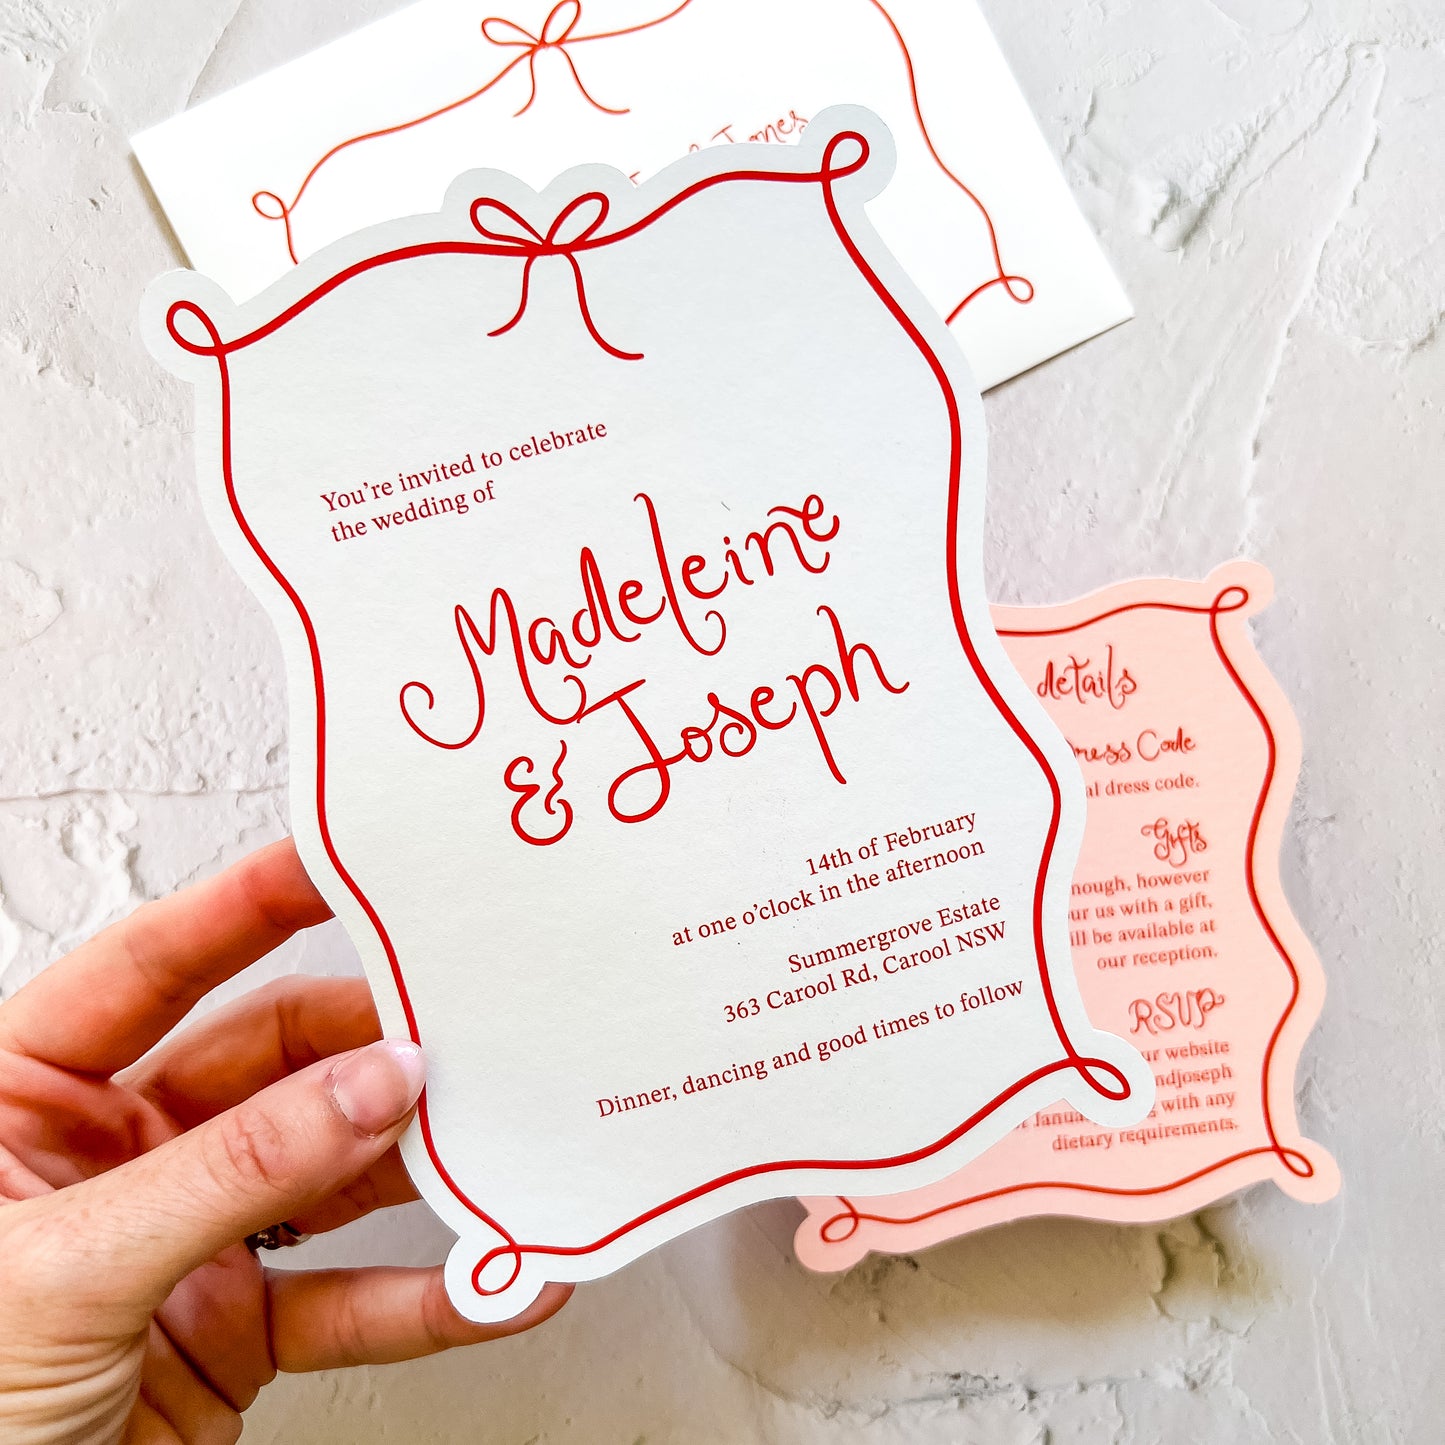 Jones
You're invited to celebrate
the wedding of
Madeleine
& Joseph
14th of February
at one o'clock in the afternoon
Summergrove Estate
363 Carool Rd, Carool NSW
Dinner, dancing and good times to follow
details
Code
dress code.
Gifts
however
us with a gift,
be available at
our reception.
RSVP
website
with any
dietary requirements.